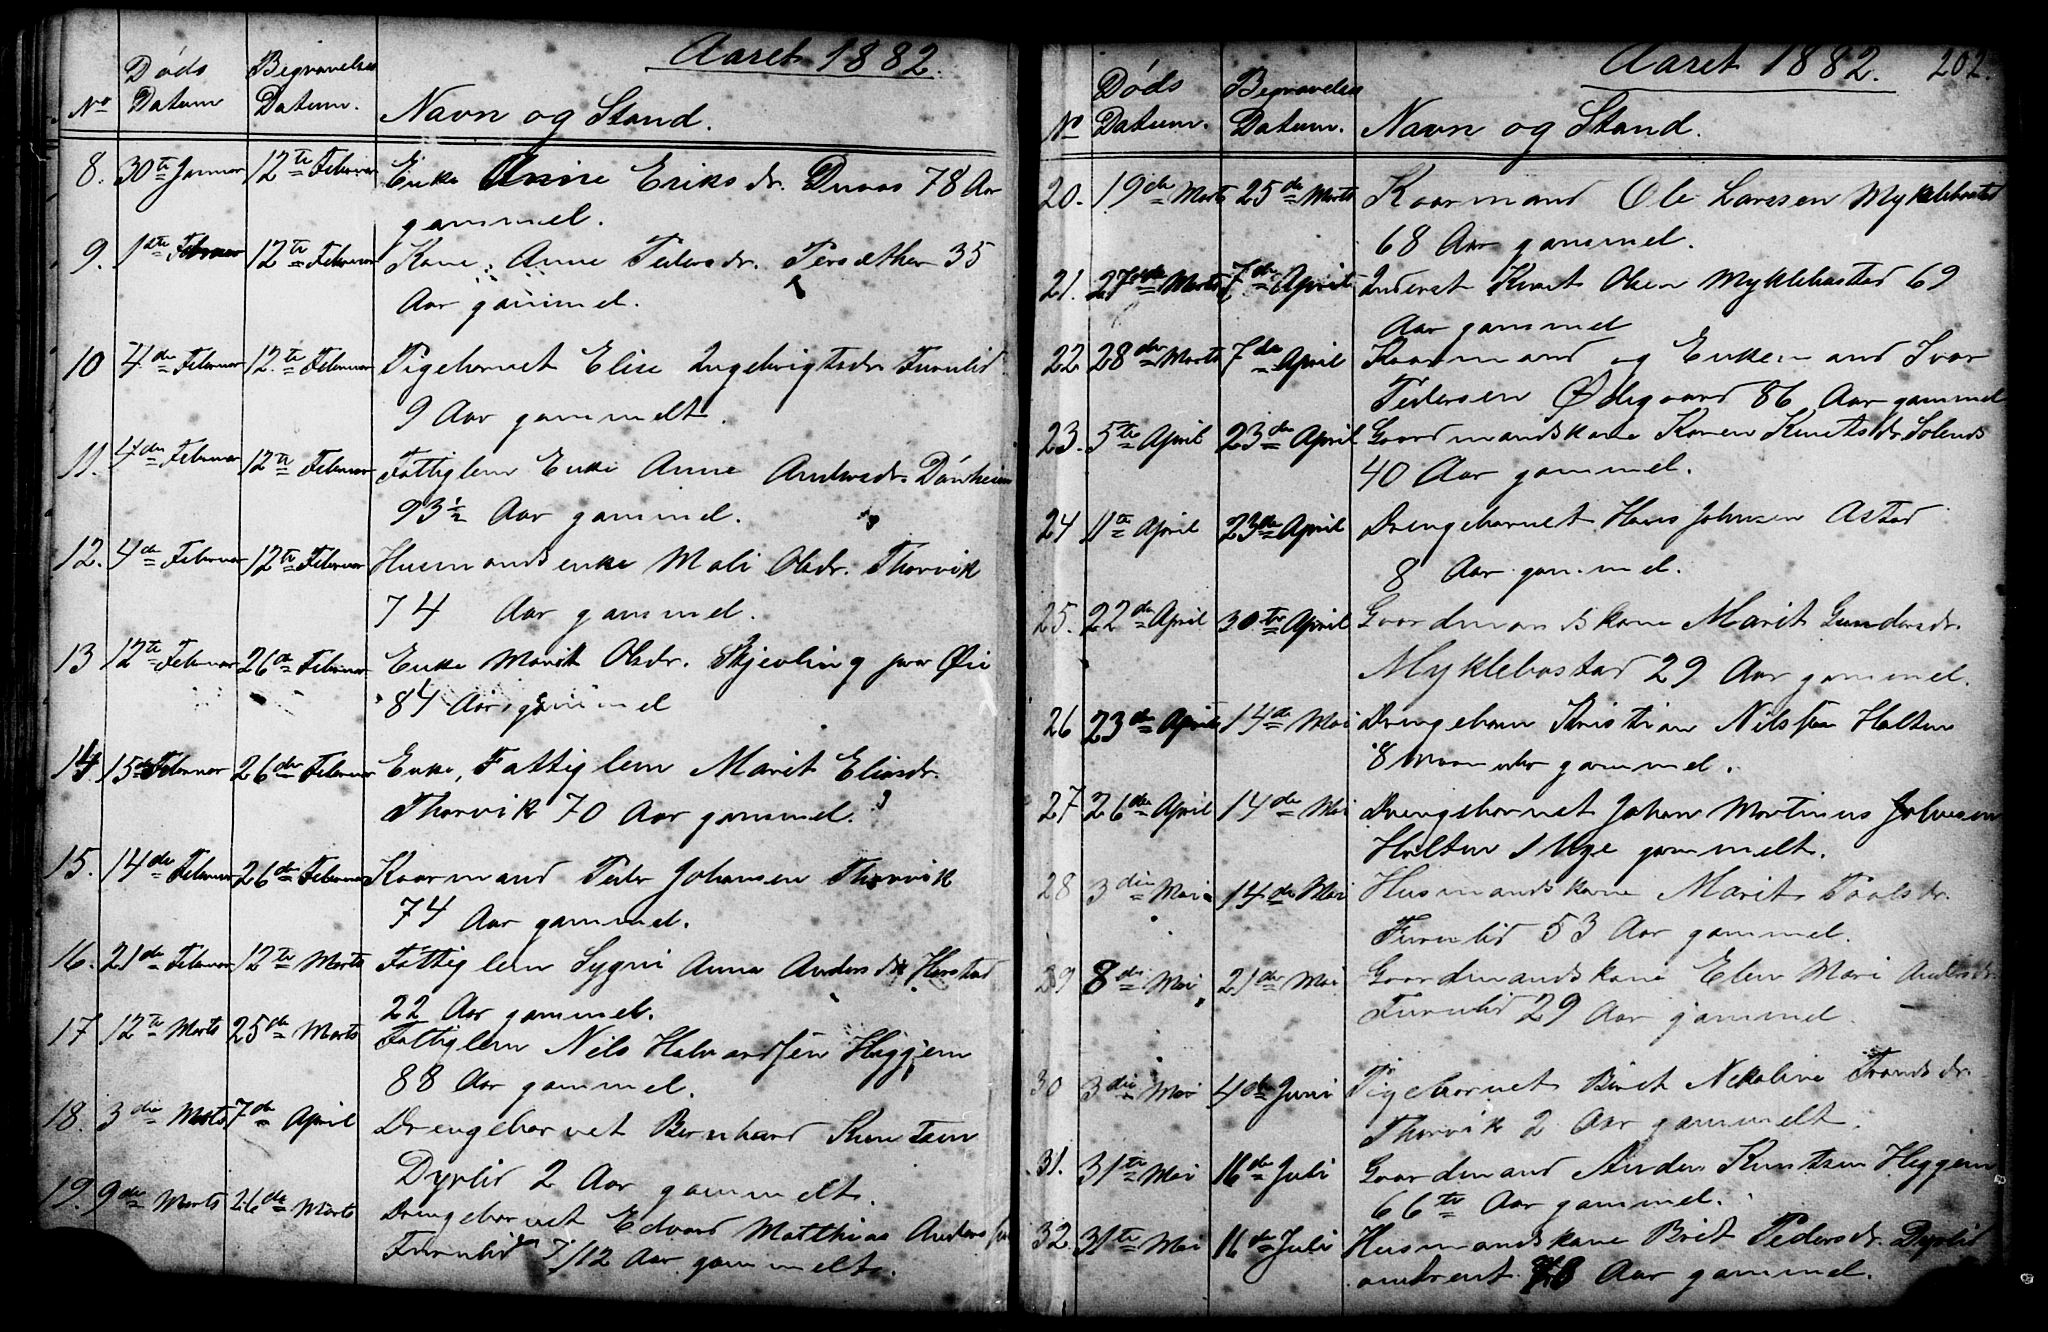 Aaret 1882.
No
Døds Datum
Begravelses Datum.
Navn og Stand.
8. 30te Januar 12te Februar Enke Anne Eriksdr. 78 Aar
gammel.
9. 1ste Februar 12te Februar Kone Anne Pedersdr. 35
Aar gammel.
10 4de Februar 12te Februar Pigebarnet Elise Ingebrigtsdr Furulid
9 Aar gammelt.
11. 4de Februar 12te Februar Fattiglem Enke Anne Andersdr.
93 1/2 Aar gammel.
12. 4de Februar 12te Februar Husmandsenke Mali Olsdr. Thorvik
74 Aar gammel.
13 12te Februar 26de Februar Enke Marit Olsdr. Skjevling paa Øie
84 Aar gammel
14. 15de Februar 26de Februar Enke, Fattiglem Marit Eliasdr.
Thorvik 70 Aar gammel.
15. 14de Februar 26de Februar Kaarmand Peder Johansen Thorvik
74 Aar gammel.
16. 21de Februar 12te Marts Fattiglem Sygni Anne Andersdr Harstad
22 Aar gammel.
17 12te Marts 25de Marts Fattiglem Nils Halvardsen Heggem
88 Aar gammel.
18. 3die Marts 7de April Drengebarnet Bernhard Knutsen
Dyrlid 2 Aar gammelt.
19. 9de Marts 26de Marts Drengebarnet Edvard Matthias Anderssen
Furulid 7/12 Aar gammelt.
Aaret 1882. 202.
No
Døds Datum.
Begravelses Datum.
Navn og Stand.
20. 19de Marts 25de Marts Kaarmand Ole Larssen Myklebostad
68 Aar gammel.
21. 27de Marts 7de April Inderst Knut Olsen Myklebostad 69
Aar gammel
22. 28de Marts 7de April Kaarmand og Enkemand Ivar
Pedersen Ødegaard 86 Aar gammel
23. 5te April 23de April Gaardmandskone Karen Knutsdr
40 Aar gammel.
24 11te April 23de April Drengebarnet Hans Johnsen Astad
8 Aar gammel.
25. 22de April 30te April Gaardmandskone Marit Gundersdr.
Myklebostad 29 Aar gammel.
26 23de April 14de Mai Drengebarn Kristian Nilssen Holten
8 Maaneder gammel.
27 26de April 14de Mai Drengebarnet Johan Martinus Johnsen
Holten 1 Uge gammelt.
28 3die Mai 14de Mai Husmandskone Marit Paalsdr.
Furulid 53 Aar gammel.
29 8de Mai 21de Mai Gaardmandskone Elen Mari Andersdr.
Furulid 29 Aar gammel.
30 3die Mai 4de Juni Pigebarnet Beret Nekoline Trondsdr.
Thorvik 2 Aar gammelt.
31. 31te Mai 16de Juli Gaardmand Anders Knutsen Heggem
66te Aar gammel.
32. 31te Mai 16de Juli Husmandskone Brit Pedersdr. Dyrlid
omtrent Aar gammel.